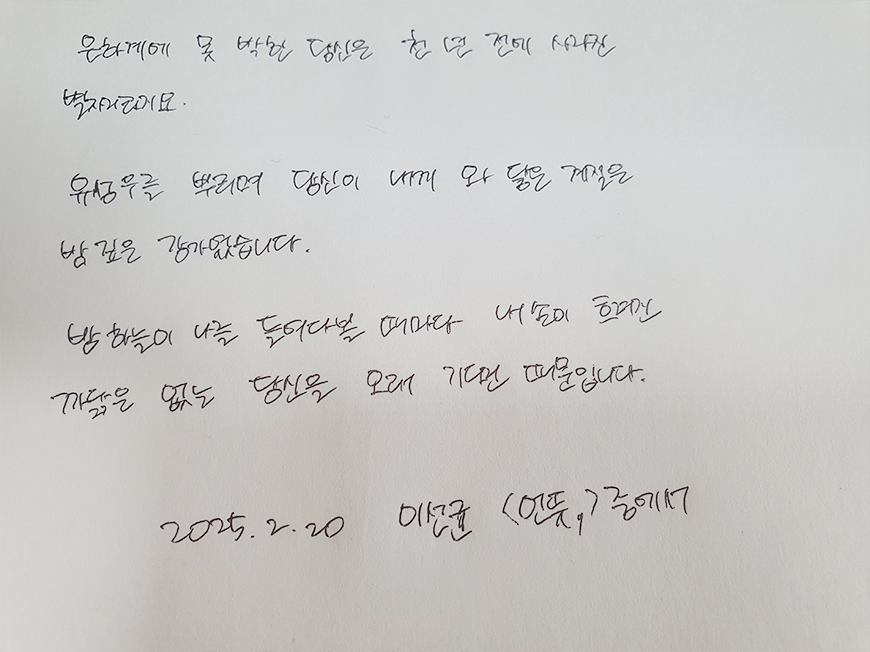 은하계에 못 박힌 당신은 천 년 전에 사라진
별자리라지요.
유성우를 뿌리며 당신이 내게 와 닿은 계절은
밤 깊은 강가였습니다.
밤 하늘이 나를 들여다볼 때마다 내 눈이 흐려진
까닭은 없는 당신을 오래 기다린 때문입니다.
2025. 2. 20 이선균 <언뜻,> 중에서